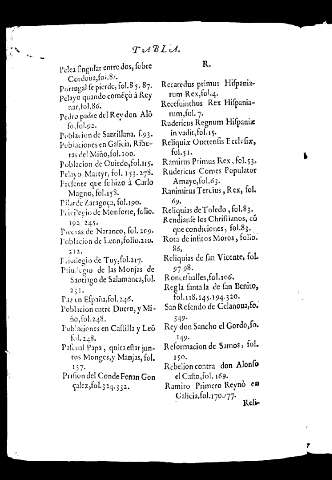 TABLA.
Pelea singular entre dos, sobre
Cordoua, fol.81.
Portugal se pierde, fol.85. 87.
Pelayo quando començò à Rey
nar, fol.86.
Pedro padre del Rey don Alō
so fo,92.
Poblacion de Santillana, f.93.
Poblaciones en Galicia, Ribe-
ras del Miño, fol.100.
Poblacion de Ouiedo, fol.115.
Pelayo Martyr, fol. 153. 278.
Presente que se hizo à Carlo
Magno, fol.158.
Pilar de Zaragoça, fol.190.
Priuilegio de Monforte, folio
192. 245.
Poetas de Naranco, fol.209.
Poblacion de Leon, folio.210.
212.
Priuilegio de Tuy, fol.217.
Priuilegio de las Monjas de
Santiago de Salamanca, fol.
231.
Paz en España, fol.246.
Poblacion entre Duero, y Mi-
ño, fol.248.
Poblaciones en Castilla y Leō
fol.248.
Pascual Papa, quita estar jun-
tos Monges, y Monjas, fol.
157.
Prision del Conde Fernan Gon
çalez, fol.324.332.
R.
Recaredus primus Hispania-
rum Rex, fol.4.
Recesuinthus Rex Hispania-
rum, fol.7.
Rudericus Regnum Hispaniæ
inuadit, fol.15.
Reliquiæ Ouetensis Ecclesiæ,
fol.51.
Ramirus Primus Rex, fol.53.
Rudericus Comes Populator
Amaye, fol.63.
Ranimirus Tercius, Rex, fol.
69.
Reliquias de Toledo, fol.83.
Rendianse los Christianos, cō
que condiciones, fol.83.
Rota de infinitos Moros, folio.
86.
Reliquias de san Vicente, fol.
97.98.
Roncesualles, fol.106.
Regla santa la de san Benito,
fol.118.145.194.320.
San Rosendo de Celanoua, fo.
349.
Rey don Sancho el Gordo, fo.
149.
Reformacion de Samos, fol.
150.
Rebelion contra don Alonso
el Casto, fol. 169.
Ramiro Primero Reynò en
Galicia, fol.170.177.
Reli-